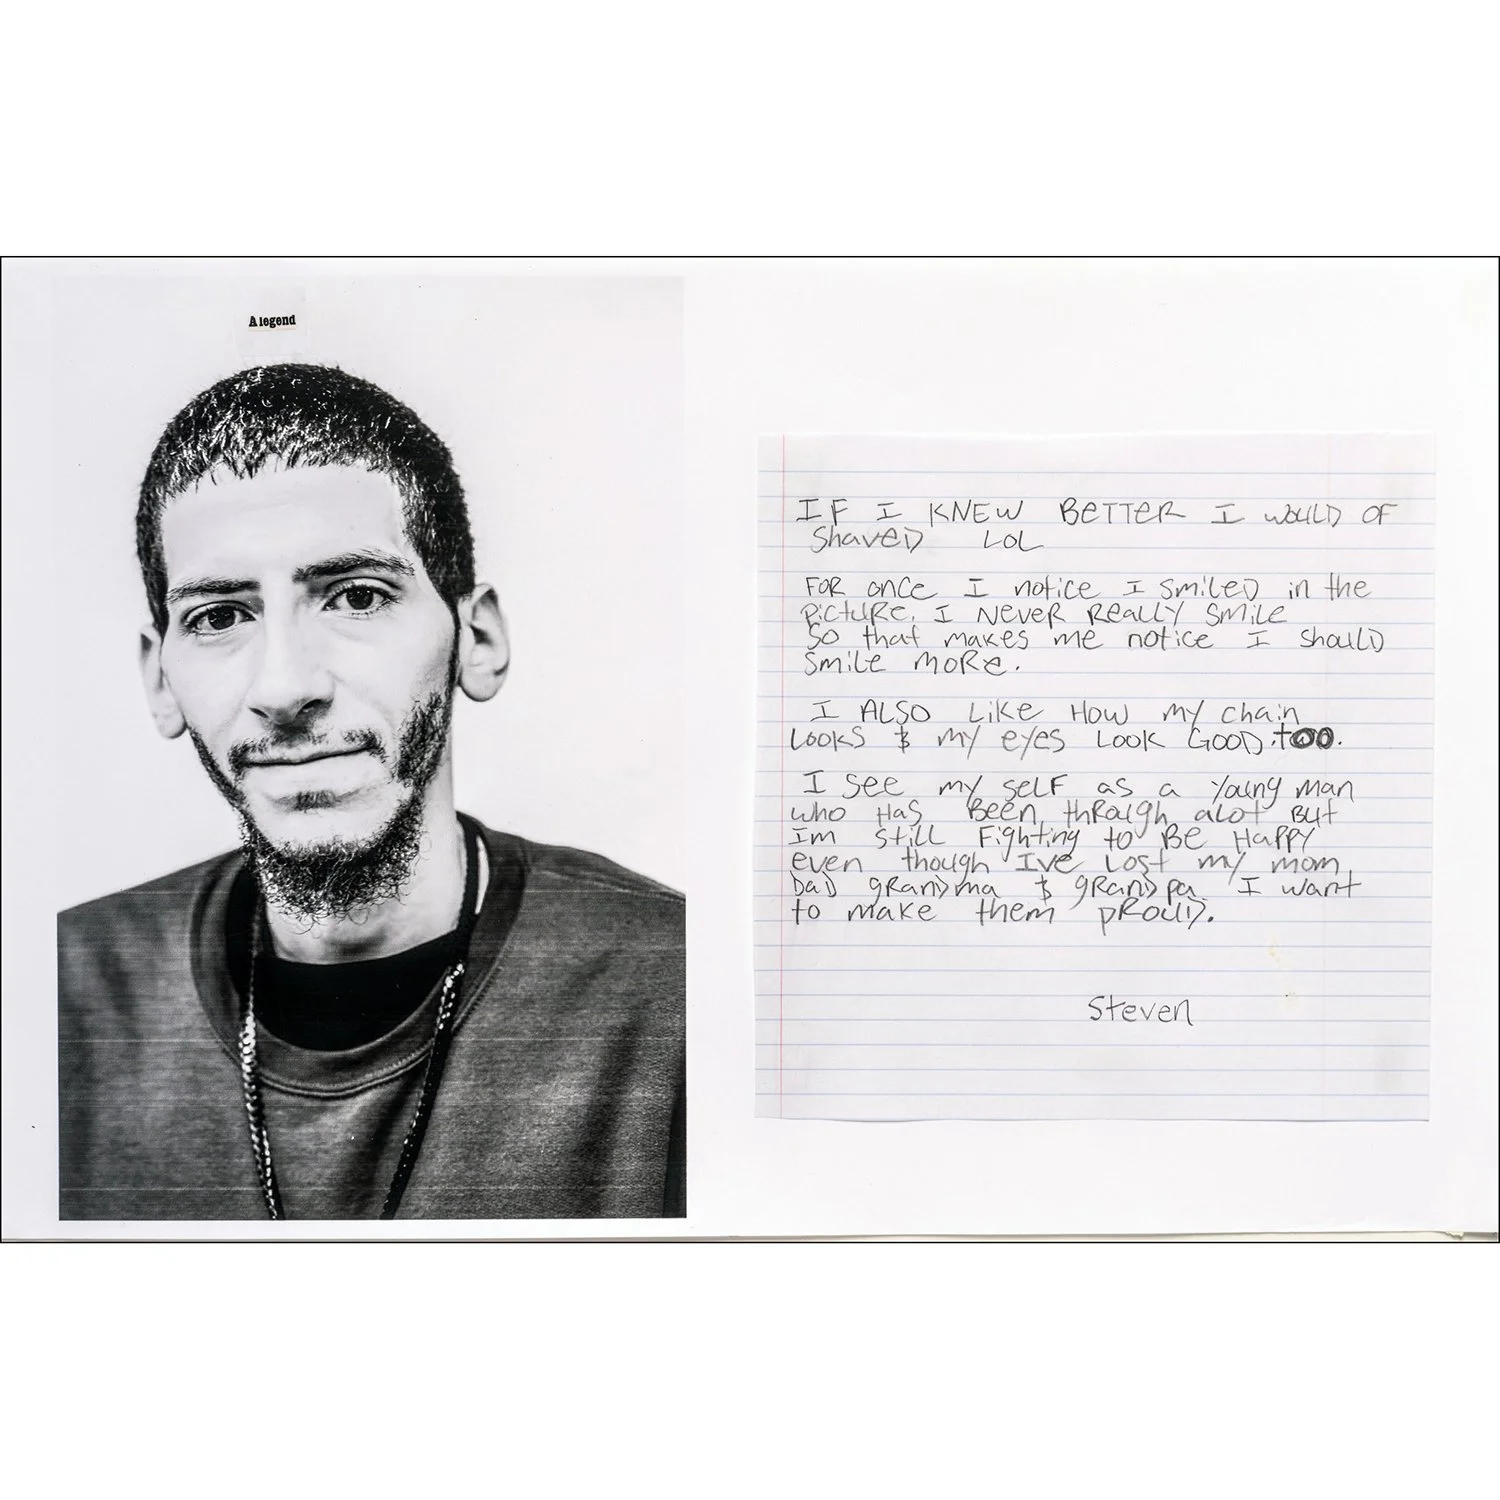 A legend
IF I KNEW BETTER I WOULD OF
SHAVED LOL
FOR ONCE I notice I SMILED in the
PICTURE. I NEVER REALLY SMILE
SO that makes me notice I SHOULD
SMILE MORE.
I ALSO LIKE HOW my chain
LOOKS & my eyes LOOK GOOD too.
I SEE my SELF as a young man
who HAS BEEN through alot BUT
Im still Fighting to BE HAPPY
even though I've LOST my mom
DAD gRANDma & gRANDpa I want
to make them PROUD.
Steven